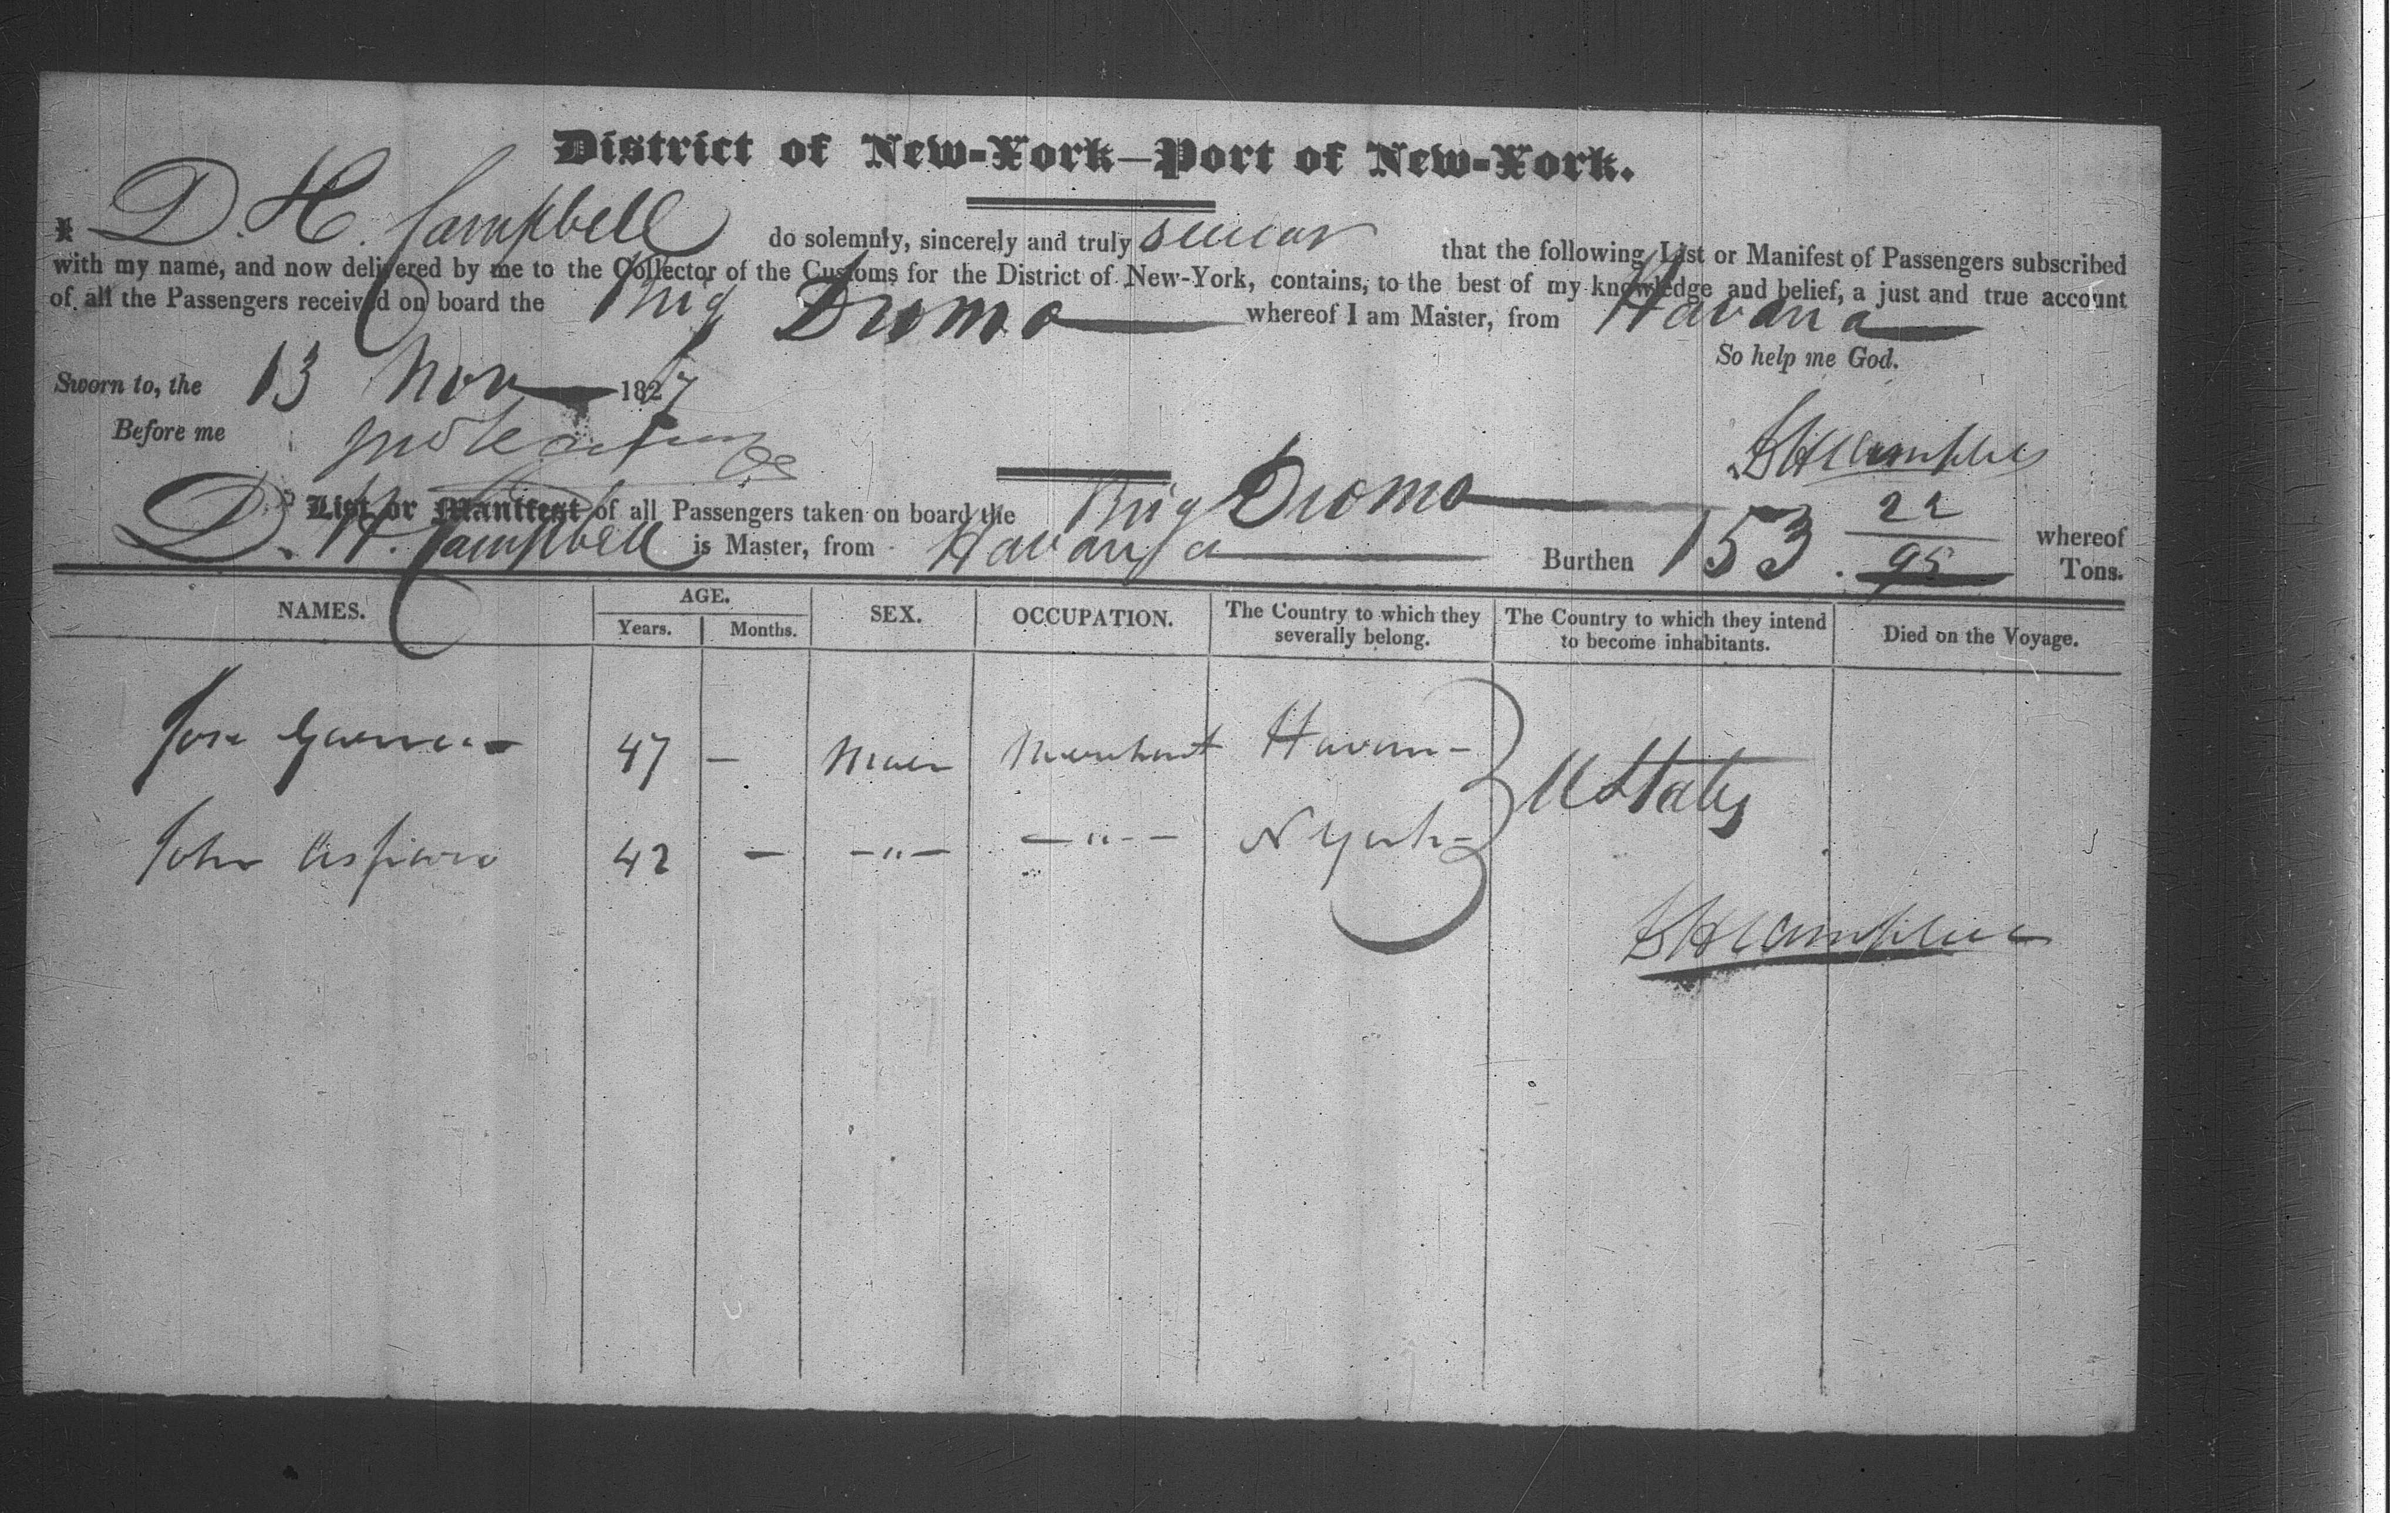 District of New-York—Port of New-York.
I D. H. Campbell do solemnly, sincerely and truly swear that the following List or Manifest of Passengers subscribed
with my name, and now delivered by me to the Collector of the Customs for the District of New-York, contains, to the best of my knowledge and belief, a just and true account
of all the Passengers received on board the Brig Dromo whereof I am Master, from Havana
So help me God.
Sworn to, the 13 Nov 1827
Before me
D H Campbell
List or Manifest of all Passengers taken on board the Brig Dromo whereof
D. H. Campbell is Master, from Havanna Burthen 153 22/95 Tons.
NAMES. AGE. SEX. OCCUPATION. The Country to which they severally belong. The Country to which they intend to become inhabitants. Died on the Voyage.
Years. Months.
Jose 47 — Male Merchant Havana U States
John 42 — —"— —"— N York
D H Campbell